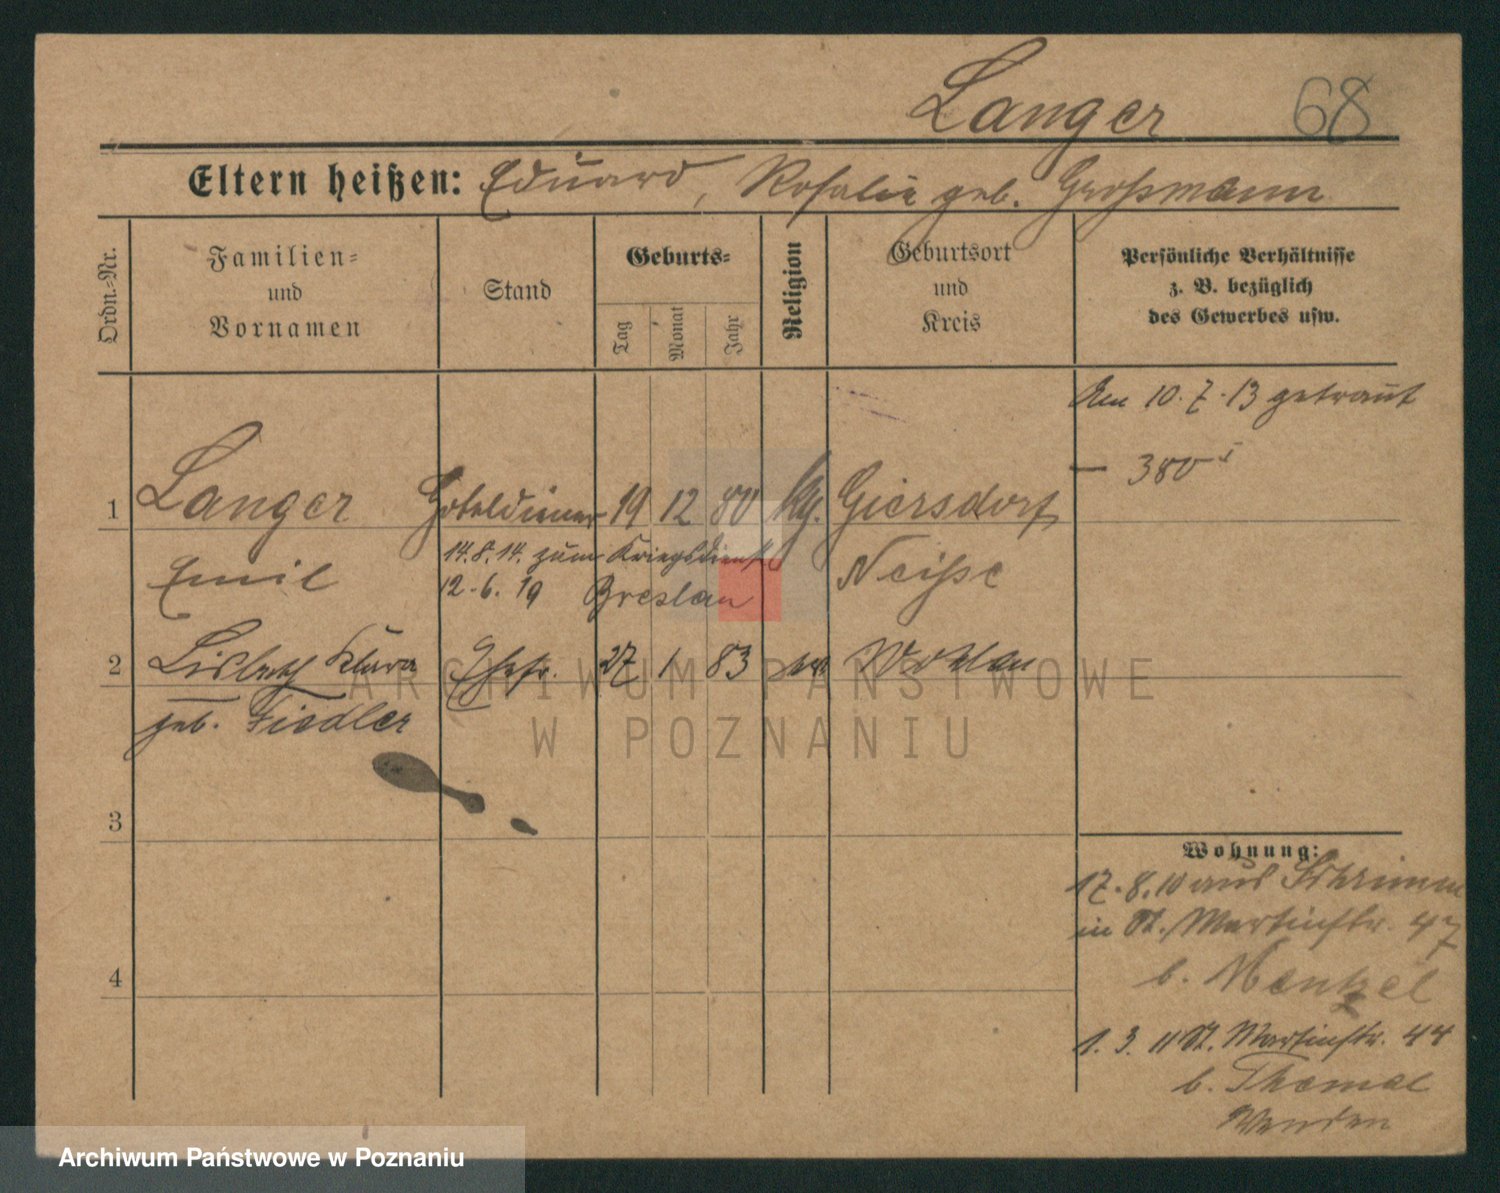 Langer 68
Eltern heißen: Eduard, Rosalie geb. Großmann
Ordn.-Nr.
Familien-
und
Vornamen
Stand
Geburts-
Tag
Monat
Jahr
Religion
Geburtsort
und
Kreis
Persönliche Verhältnisse
z. B. bezüglich
des Gewerbes usw.
Am 10.7.13 getraut
— 380
1 Langer Hoteldiener 19 12 80 Giersdorf
14.8.14. zum Kriegsdienst
Emil Neisse
12.6.19 Breslau
2 Klara Ehefr. 27 1 83 Wohlau
geb. Fiedler
3
4
Wohnung:
17.8.10 aus Schrimm
in St. Martinstr. 47
b. Menzel
1.3.11 St. Martinstr. 44
b. Thomal
Wenden
ARCHIWUM PAŃSTWOWE
W POZNANIU
Archiwum Państwowe w Poznaniu